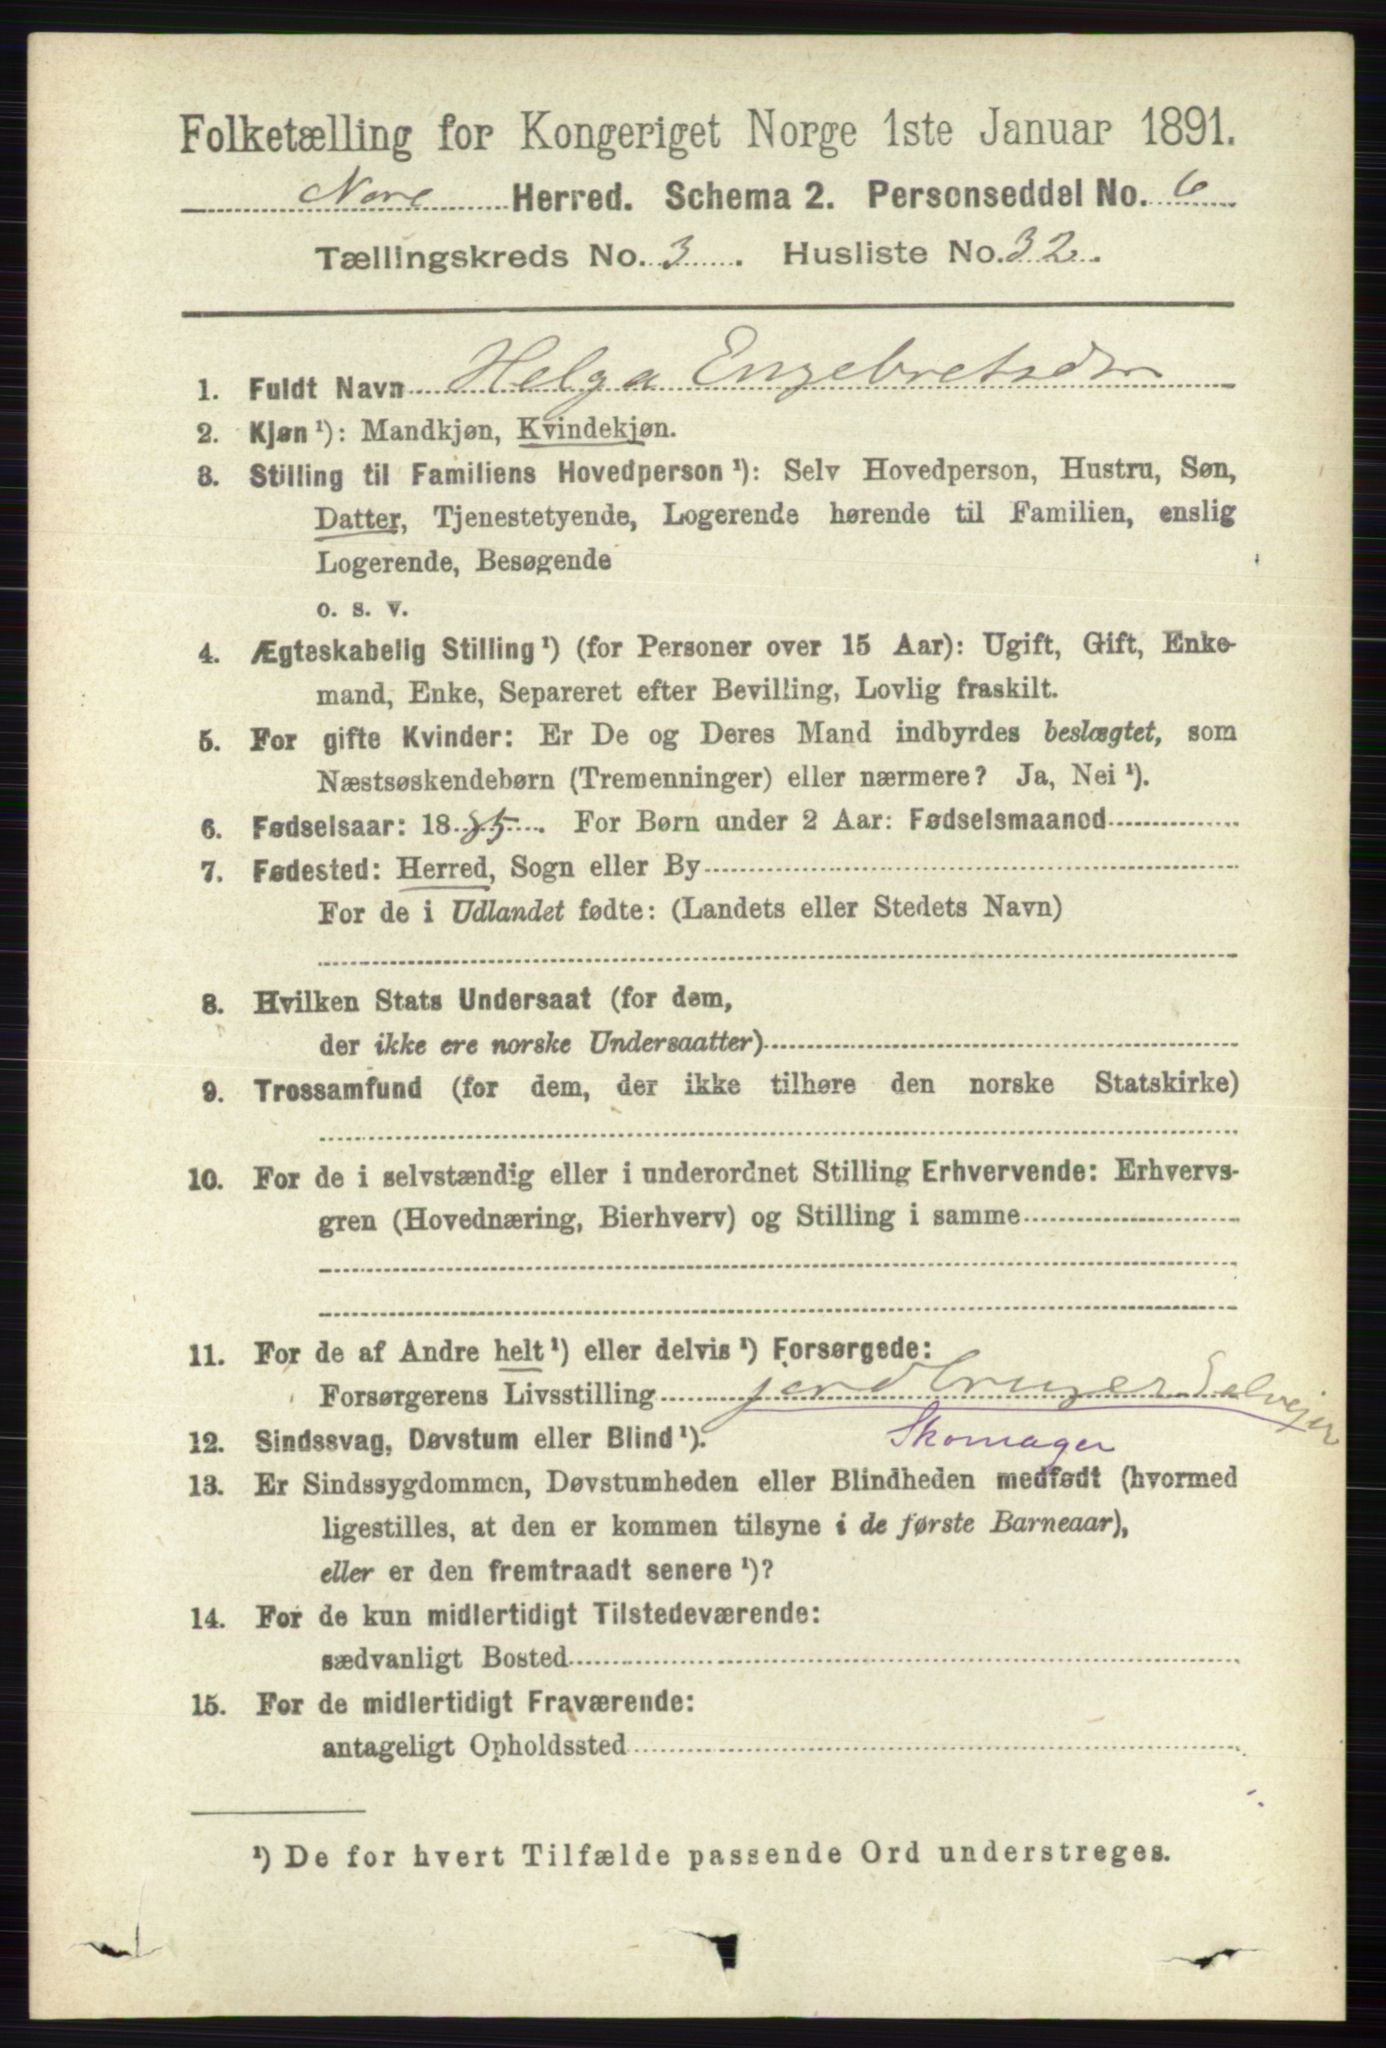 Folketælling for Kongeriget Norge 1ste Januar 1891.
Nore Herred. Schema 2. Personseddel No. 6
Tællingskreds No. 3. Husliste No. 32.
1. Fuldt Navn Helga Engebretsdtr
2. Kjøn ¹): Mandkjøn, Kvindekjøn.
3. Stilling til Familiens Hovedperson ¹): Selv Hovedperson, Hustru, Søn,
Datter, Tjenestetyende, Logerende hørende til Familien, enslig
Logerende, Besøgende
o. s. v.
4. Ægteskabelig Stilling ¹) (for Personer over 15 Aar): Ugift, Gift, Enke-
mand, Enke, Separeret efter Bevilling, Lovlig fraskilt.
5. For gifte Kvinder: Er De og Deres Mand indbyrdes beslægtet, som
Næstsøskendebørn (Tremenninger) eller nærmere? Ja, Nei ¹).
6. Fødselsaar: 1885. For Børn under 2 Aar: Fødselsmaaned
7. Fødested: Herred, Sogn eller By
For de i Udlandet fødte: (Landets eller Stedets Navn)
8. Hvilken Stats Undersaat (for dem,
der ikke ere norske Undersaatter)
9. Trossamfund (for dem, der ikke tilhøre den norske Statskirke)
10. For de i selvstændig eller i underordnet Stilling Erhvervende: Erhvervs-
gren (Hovednæring, Bierhverv) og Stilling i samme
11. For de af Andre helt ¹) eller delvis ¹) Forsørgede:
Forsørgerens Livsstilling jordbruger Selvejer
12. Sindssvag, Døvstum eller Blind ¹). Skomager
13. Er Sindssygdommen, Døvstumheden eller Blindheden medfødt (hvormed
ligestilles, at den er kommen tilsyne i de første Barneaar),
eller er den fremtraadt senere ¹)?
14. For de kun midlertidigt Tilstedeværende:
sædvanligt Bosted
15. For de midlertidigt Fraværende:
antageligt Opholdssted
¹) De for hvert Tilfælde passende Ord understreges.